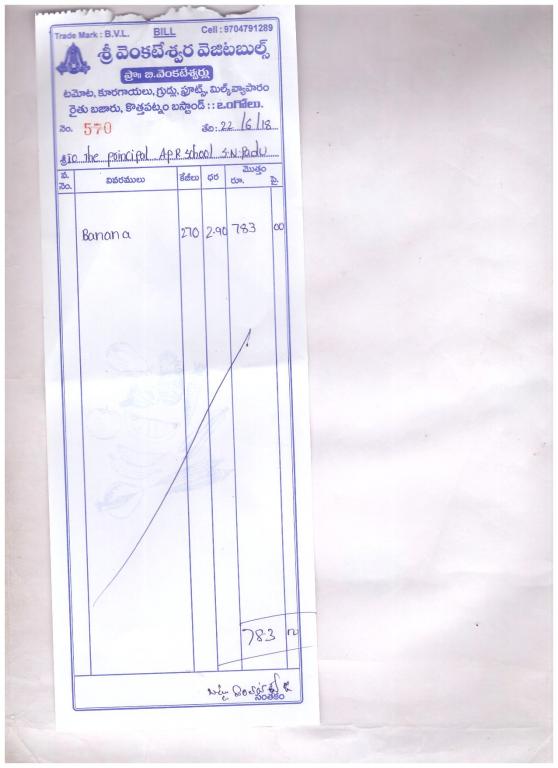 Trade Mark : B.V.L. BILL Cell : 9704791289
శ్రీ వెంకటేశ్వర వెజిటబుల్స్
ప్రొః బి.వెంకటేశ్వర్లు
టమోట, కూరగాయలు, గ్రుడ్లు, ఫ్రూట్స్, మిల్క్‌వ్యాపారం
రైతు బజారు, కొత్తపట్నం బస్టాండ్ :: ఒంగోలు.
నెం. 570 తేది: 22/6/18
శ్రీ the principal A.P.R School S.N.Padu
వ. నెం. వివరములు కేజీలు ధర మొత్తం రూ. పై.
Banana 270 2.90 783 00
783
సంతకం